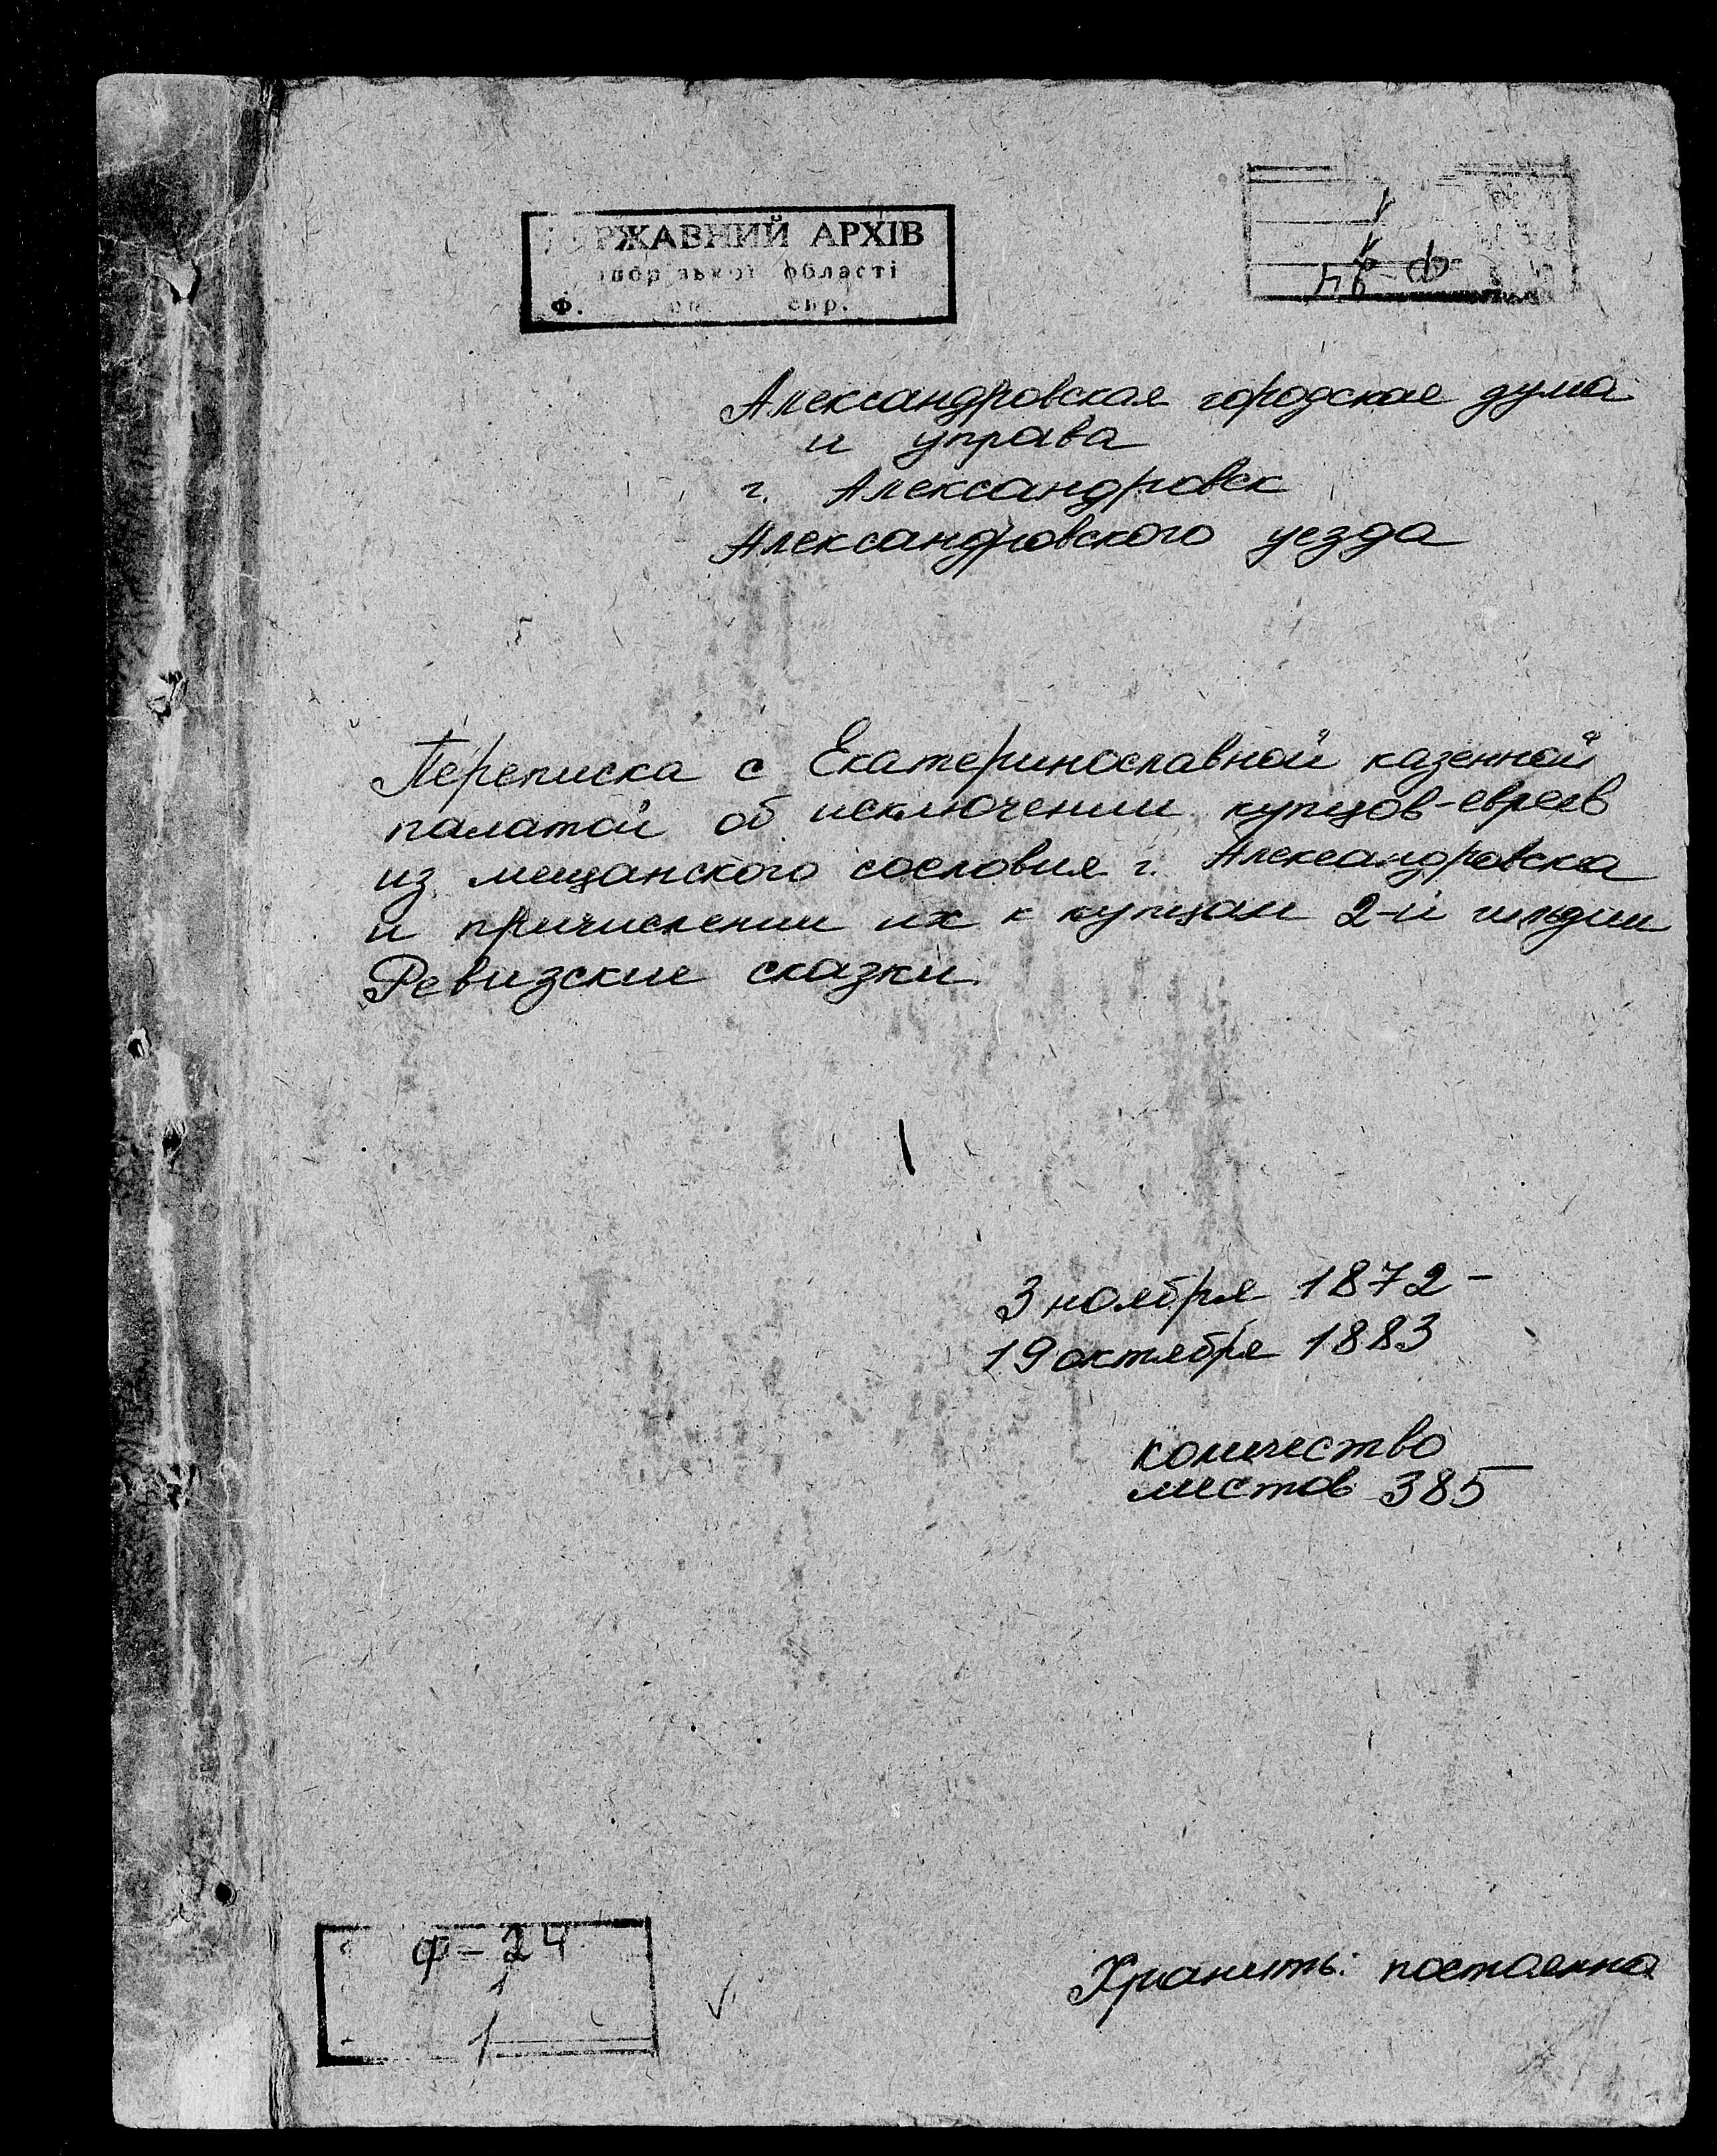 ДЕРЖАВНИЙ АРХІВ
області
Ф. оп. спр.
Александровская городская дума
и управа
г. Александровск
Александровского уезда
Переписка с Екатеринославной казенной
палатой об исключении купцов-евреев
из мещанского сословия г. Александровска
и причислении их к купцам 2-й гильдии
Ревизские сказки.
3 ноября 1872 -
19 октября 1883
количество
листов 385
Ф - 24
1
1
Хранить: постоянно